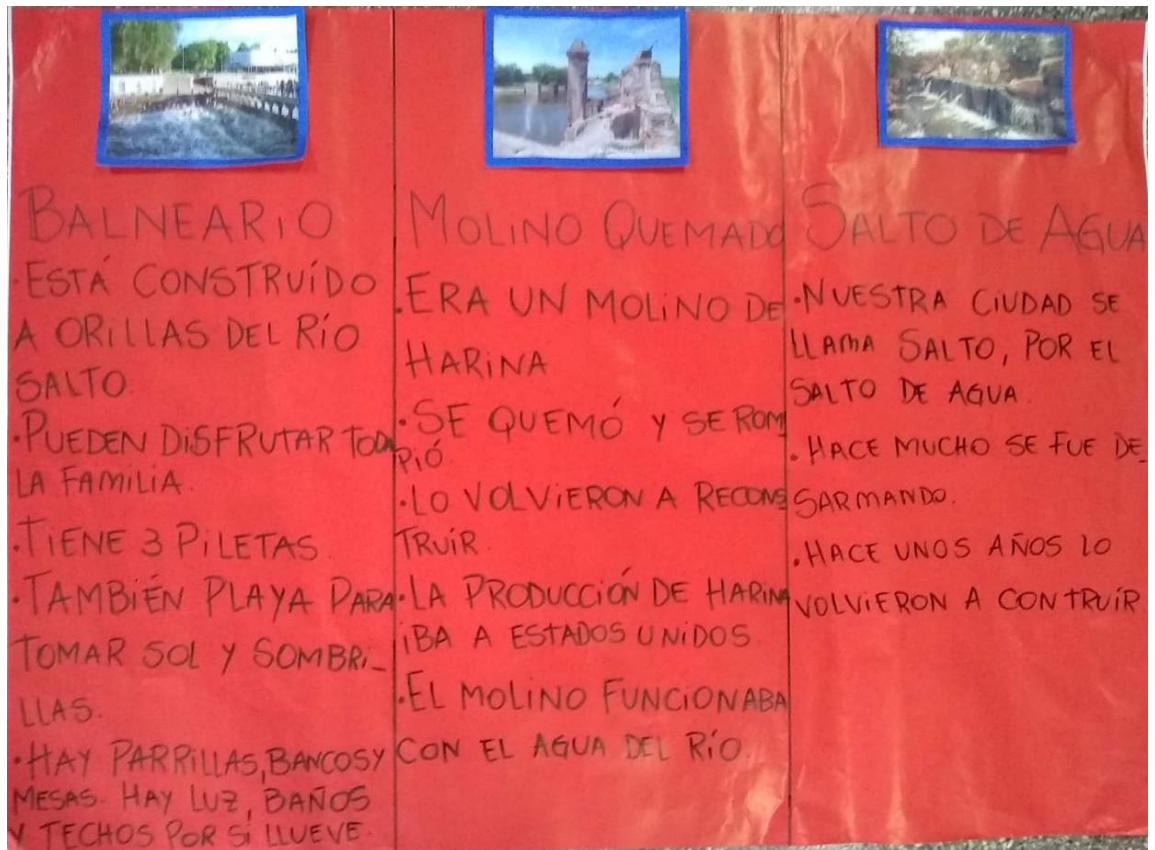 BALNEARIO
·ESTÁ CONSTRUÍDO
A ORILLAS DEL RÍO
SALTO.
·PUEDEN DISFRUTAR TODA
LA FAMILIA.
·TIENE 3 PILETAS.
·TAMBIÉN PLAYA PARA
TOMAR SOL Y SOMBRI_
LLAS.
·HAY PARRILLAS, BANCOS Y
MESAS. HAY LUZ, BAÑOS
Y TECHOS POR SÍ LLUEVE.
MOLINO QUEMADO
·ERA UN MOLINO DE
HARINA
·SE QUEMÓ Y SE ROM
PIÓ.
·LO VOLVIERON A RECONS
TRUÍR.
·LA PRODUCCIÓN DE HARINA
IBA A ESTADOS UNIDOS.
·EL MOLINO FUNCIONABA
CON EL AGUA DEL RÍO.
SALTO DE AGUA
·NUESTRA CIUDAD SE
LLAMA SALTO, POR EL
SALTO DE AGUA.
·HACE MUCHO SE FUE DE_
SARMANDO.
·HACE UNOS AÑOS LO
VOLVIERON A CONTRUÍR